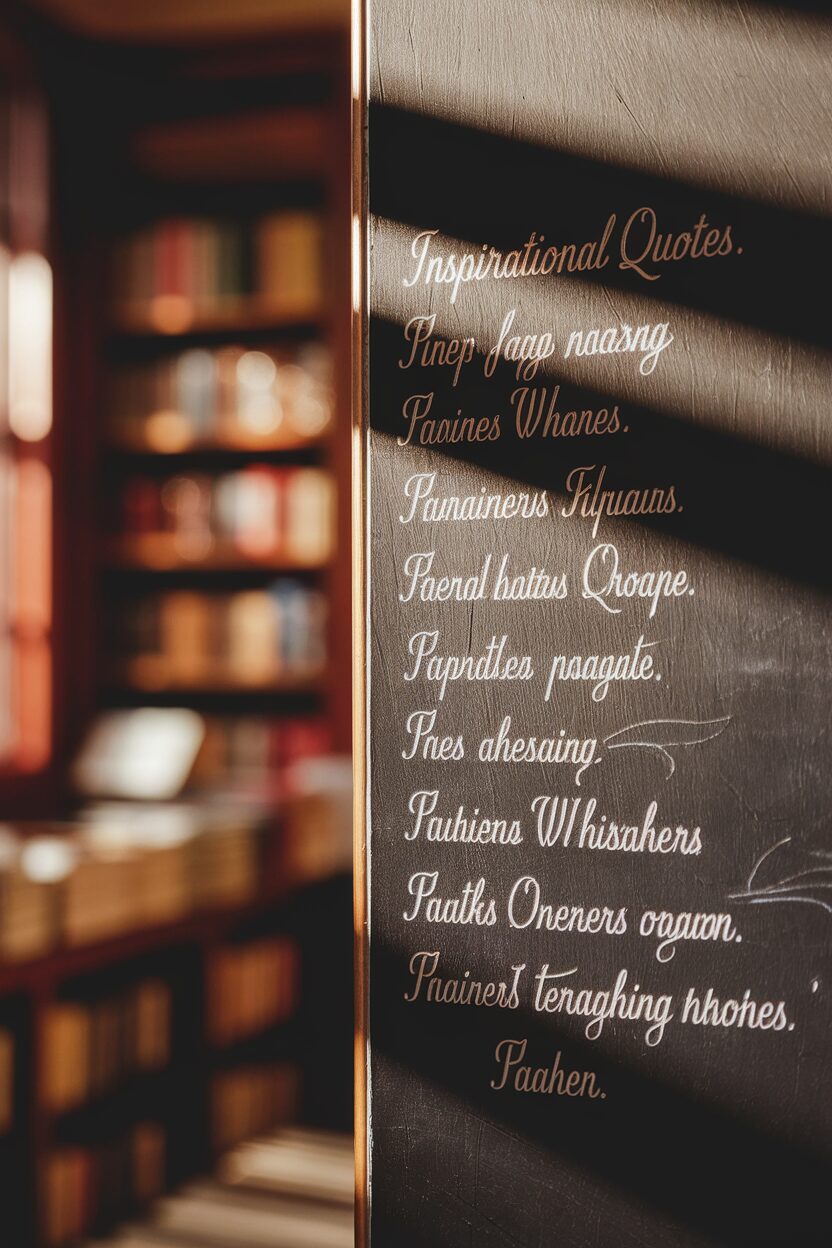 Inspirational Quotes.
Pinep faap naasng
Paaines Whanes.
Pamainens
Paeral hattus Qroape.
Papndtles psagate.
Pnes ahesaing.
Pauhiens Whisahers
Paatks Oneners
Paainers teraghing hhohes.
Paahen.